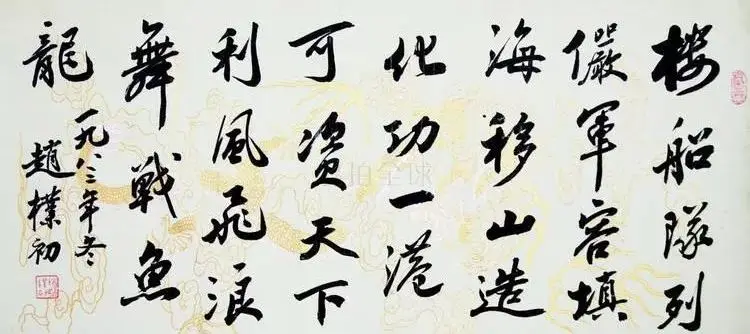 楼船隊列
儼軍容填
海移山造
化功一港
可資天下
利風飛浪
舞戰魚
龍
一九八三年冬
趙樸初